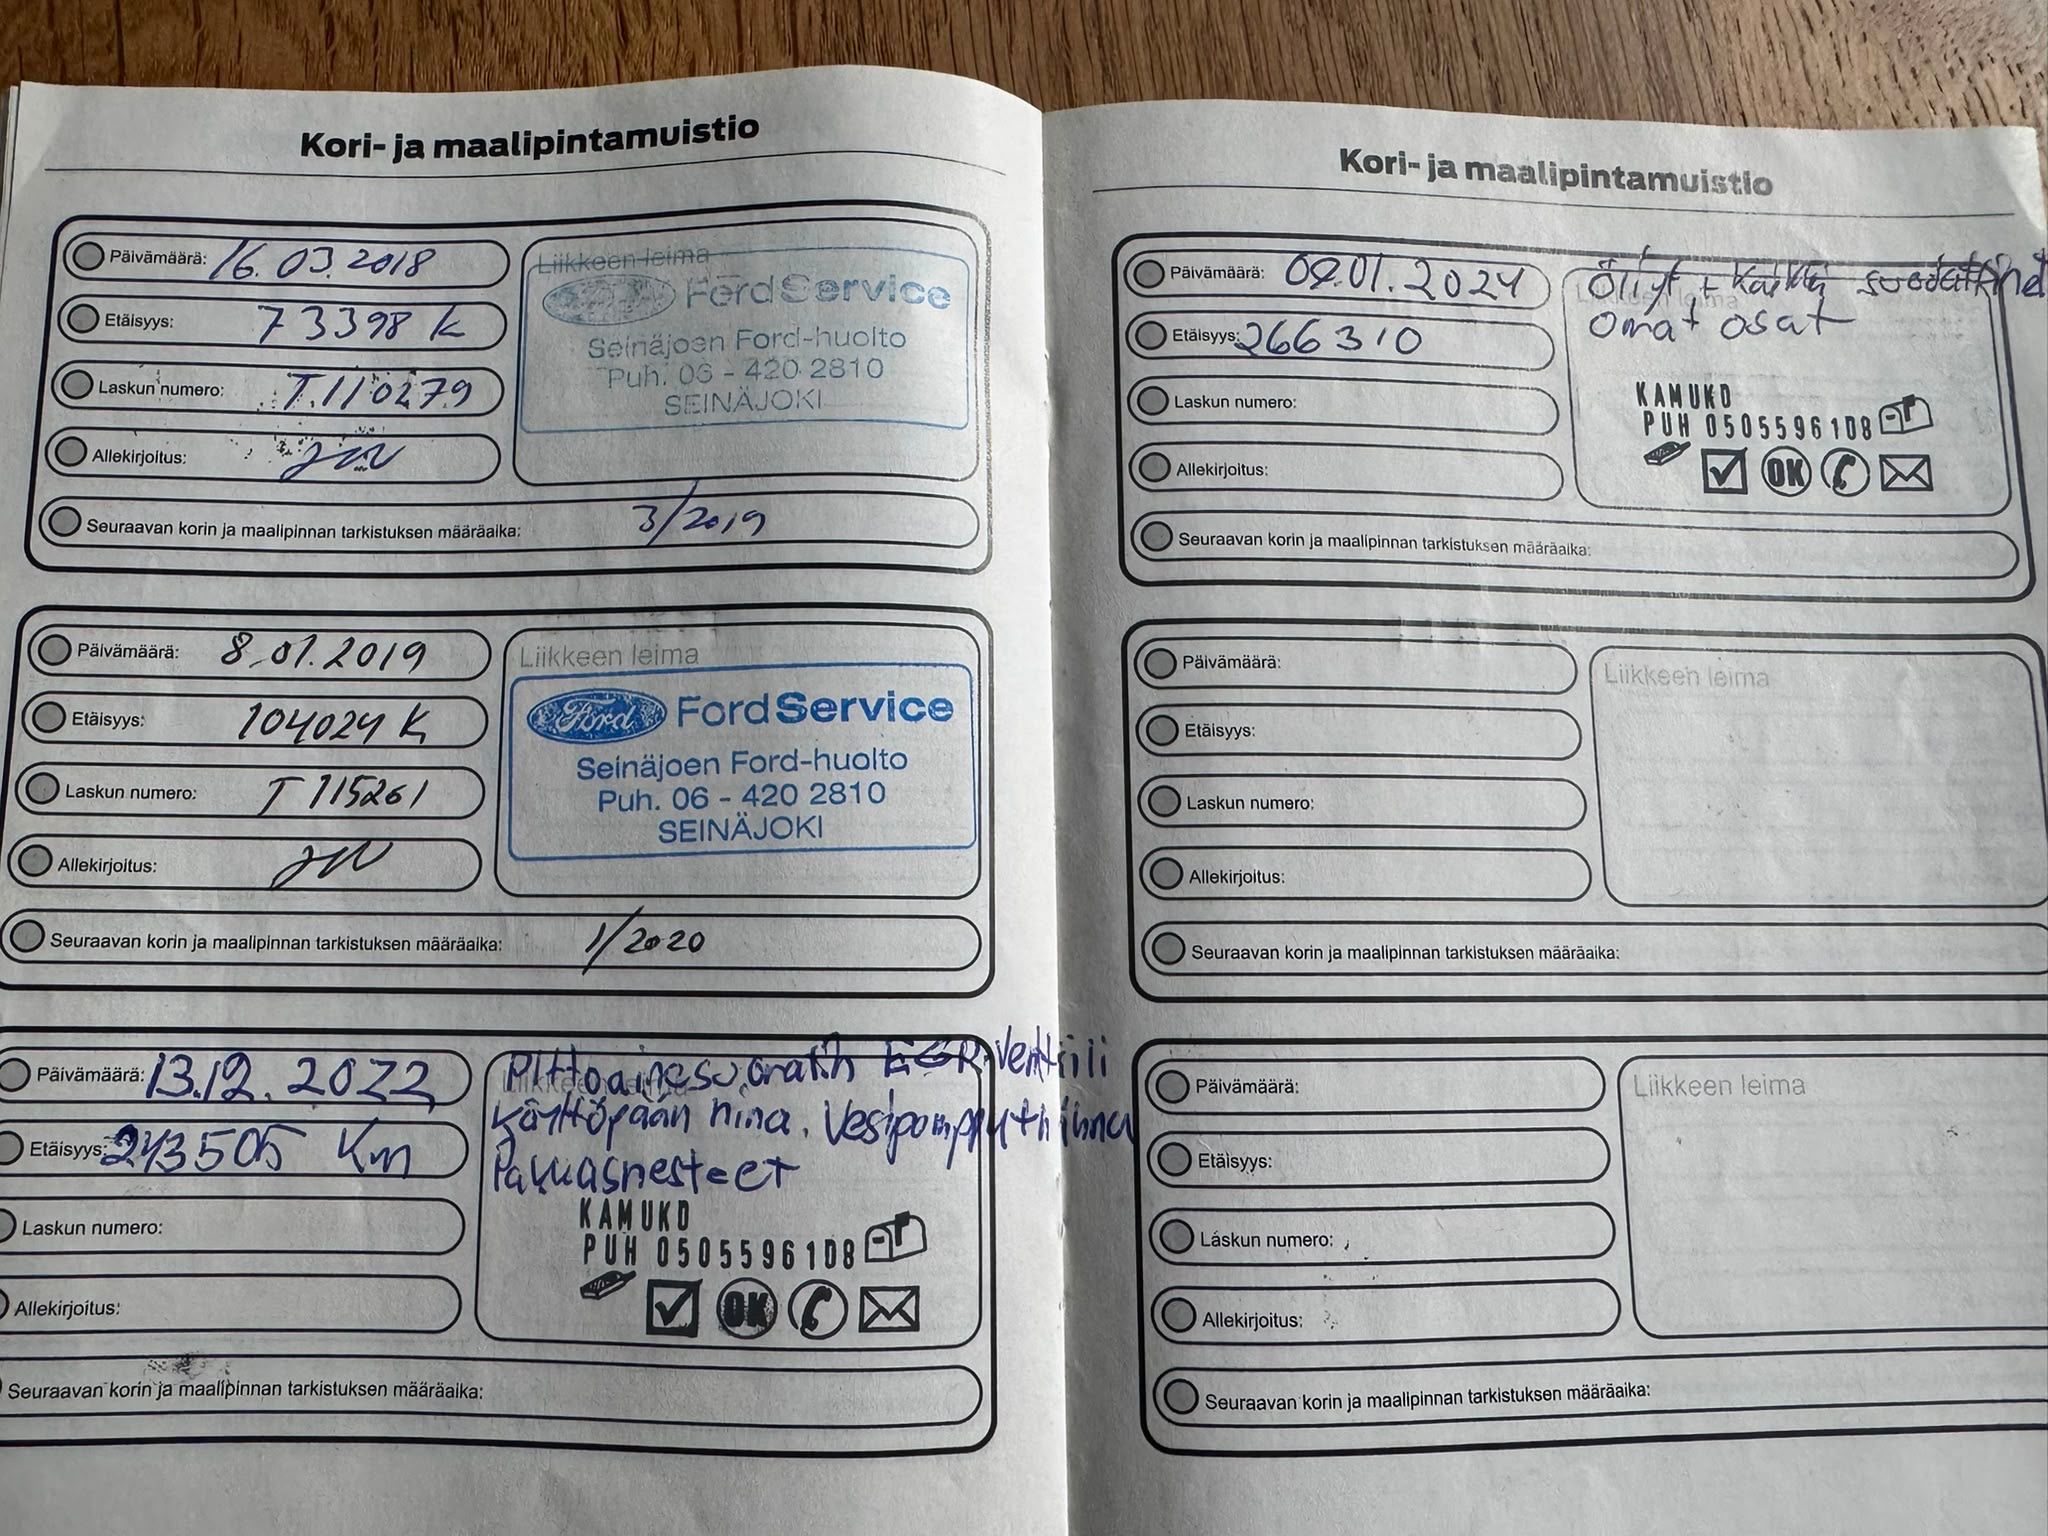 Kori- ja maalipintamuistio
Päivämäärä: 16.03.2018
Etäisyys: 73398 k
Laskun numero: T.110279
Allekirjoitus:
Liikkeen leima
Ford Service
Seinäjoen Ford-huolto
Puh. 06 - 420 2810
SEINÄJOKI
Seuraavan korin ja maalipinnan tarkistuksen määräaika: 3/2019
Päivämäärä: 8.01.2019
Etäisyys: 104024 K
Laskun numero: T 115261
Allekirjoitus:
Liikkeen leima
Ford FordService
Seinäjoen Ford-huolto
Puh. 06 - 420 2810
SEINÄJOKI
Seuraavan korin ja maalipinnan tarkistuksen määräaika: 1/2020
Päivämäärä: 13.12.2022
Etäisyys: 243505 Km
Laskun numero:
Allekirjoitus:
Liikkeen leima
EGR-Venttiili
Käyttöpään hina. Vesipomppu + hihna
KAMUKO
PUH 0505596108
OK
Seuraavan korin ja maalipinnan tarkistuksen määräaika:
Kori- ja maalipintamuistio
Päivämäärä: 02.01.2024
Etäisyys: 266310
Laskun numero:
Allekirjoitus:
Liikkeen leima
Öljyt + Kaikki suodattimet
omat osat
KAMUKO
PUH 0505596108
OK
Seuraavan korin ja maalipinnan tarkistuksen määräaika:
Päivämäärä:
Etäisyys:
Laskun numero:
Allekirjoitus:
Liikkeen leima
Seuraavan korin ja maalipinnan tarkistuksen määräaika:
Päivämäärä:
Etäisyys:
Laskun numero:
Allekirjoitus:
Liikkeen leima
Seuraavan korin ja maalipinnan tarkistuksen määräaika: